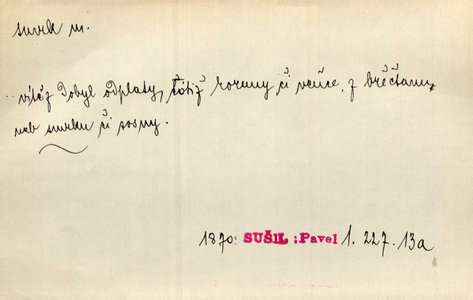 smrk m.
vítěz dobyl odplaty, totiž koruny či věnce z břečtanu,
neb smrku či sosny.
1870: SUŠIL: Pavel 1. 227. 13a